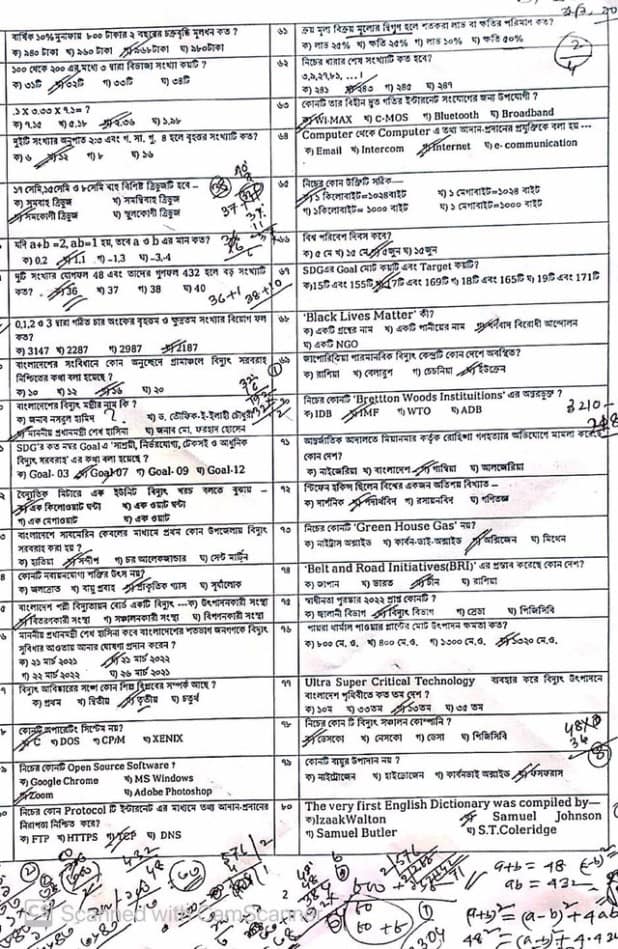 বার্ষিক ১০% মুনাফায় ৮০০ টাকার ২ বছরের চক্রবৃদ্ধি মূলধন কত ?
ক) ৯৪০ টাকা খ) ৯৬০ টাকা ৯৬৮টাকা ঘ) ৯৮০টাকা
১০০ থেকে ২০০ এর মধ্যে ৩ দ্বারা বিভাজ্য সংখ্যা কয়টি ?
ক) ৩১টি ৩২টি গ) ৩৩টি ঘ) ৩৪টি
.১ X ৩.৩৩ X ৭.১= ?
ক) ৭.১৫ খ) ৫.১৮ ২.৩৬ ঘ) ১.৯৮
দুইটি সংখ্যার অনুপাত ২:৩ এবং গ. সা. গু. ৪ হলে বৃহত্তর সংখ্যাটি কত?
ক) ৬ ১২ গ) ৮ ঘ) ১৬
১৭ সেমি,১৫সেমি ও ৮সেমি বাহু বিশিষ্ট ত্রিভুজটি হবে –
ক) সমবাহু ত্রিভুজ খ) সমদ্বিবাহু ত্রিভুজ
সমকোণী ত্রিভুজ ঘ) স্থুলকোণী ত্রিভুজ
যদি a+b =2, ab=1 হয়, তবে a ও b এর মান কত?
ক) 0,2 1,1 গ) -1,3 ঘ) -3,-4
দুটি সংখ্যার যোগফল 48 এবং তাদের গুণফল 432 হলে বড় সংখ্যাটি
কত? 36 খ) 37 গ) 38 ঘ) 40
0,1,2 ও 3 দ্বারা গঠিত চার অংকের বৃহত্তম ও ক্ষুদ্রতম সংখ্যার বিয়োগ ফল
কত?
ক) 3147 খ) 2287 গ) 2987 2187
বাংলাদেশের সংবিধানে কোন অনুচ্ছেদে গ্রামাঞ্চলে বিদ্যুৎ সরবরাহ
নিশ্চিতের কথা বলা হয়েছে ?
ক) ১০ খ) ১২ ১৬ ঘ) ২০
বাংলাদেশের বিদ্যুৎ মন্ত্রীর নাম কি ?
ক) জনাব নসরুল হামিদ খ) ড. তৌফিক-ই-ইলাহী চৌধুরী
মাননীয় প্রধানমন্ত্রী শেখ হাসিনা ঘ) জনাব মো. ফরহাদ হোসেন
SDG'র কত নম্বর Goal এ 'সাশ্রয়ী, নির্ভরযোগ্য, টেকসই ও আধুনিক
বিদ্যুৎ সরবরাহ' এর কথা বলা হয়েছে ?
ক) Goal- 03 Goal-07 গ) Goal- 09 ঘ) Goal-12
বৈদ্যুতিক মিটারে এক ইউনিট বিদ্যুৎ খরচ বলতে বুঝায় –
এক কিলোওয়াট ঘন্টা খ) এক ওয়াট ঘন্টা
গ) এক মেগাওয়াট ঘ) এক ওয়াট
বাংলাদেশে সাবমেরিন কেবলের মাধ্যমে প্রথম কোন উপজেলায় বিদ্যুৎ
সরবরাহ করা হয় ?
ক) হাতিয়া সন্দ্বীপ গ) চর আলেকজান্ডার ঘ) সেন্ট মার্টিন
কোনটি নবায়নযোগ্য শক্তির উৎস নয়?
ক) জলস্রোত খ) বায়ু প্রবাহ প্রাকৃতিক গ্যাস ঘ) সূর্যালোক
বাংলাদেশ পল্লী বিদ্যুতায়ন বোর্ড একটি বিদ্যুৎ ---ক) উৎপাদনকারী সংস্থা
বিতরণকারী সংস্থা গ) সঞ্চালনকারী সংস্থা ঘ) বিপণনকারী সংস্থা
মাননীয় প্রধানমন্ত্রী শেখ হাসিনা কবে বাংলাদেশের শতভাগ জনগণকে বিদ্যুৎ
সুবিধার আওতায় আনার ঘোষণা প্রদান করেন ?
ক) ২১ মার্চ ২০২১ ২১ মার্চ ২০২২
গ) ২২ মার্চ ২০২২ ঘ) ২৬ মার্চ ২০২১
বিদ্যুৎ আবিষ্কারের সঙ্গে কোন শিল্প বিপ্লবের সম্পর্ক আছে ?
ক) প্রথম খ) দ্বিতীয় তৃতীয় ঘ) চতুর্থ
কোনটি অপারেটিং সিস্টেম নয়?
C খ) DOS গ) CP/M ঘ) XENIX
নিচের কোনটি Open Source Software ?
ক) Google Chrome খ) MS Windows
Zoom ঘ) Adobe Photoshop
নিচের কোন Protocol টি ইন্টারনেট এর মাধ্যমে তথ্য আদান-প্রদানের
নিরাপত্তা নিশ্চিত করে?
ক) FTP খ) HTTPS গ) TCP ঘ) DNS
৬১ ক্রয় মূল্য বিক্রয় মূল্যের দ্বিগুণ হলে শতকরা লাভ বা ক্ষতির পরিমাণ কত?
ক) লাভ ২৫% খ) ক্ষতি ২৫% গ) লাভ ১০% ঘ) ক্ষতি ৫০%
৬২ নিচের ধারার শেষ সংখ্যাটি কত হবে?
৩,৯,২৭,৮১, ... !
ক) ২৪১ ২৪৩ গ) ২৪৫ ঘ) ২৪৭
৬৩ কোনটি তার বিহীন দ্রুত গতির ইন্টারনেট সংযোগের জন্য উপযোগী ?
WI-MAX খ) C-MOS গ) Bluetooth ঘ) Broadband
৬৪ Computer থেকে Computer এ তথ্য আদান-প্রদানের প্রযুক্তিকে বলা হয় ---
ক) Email খ) Intercom Internet ঘ) e- communication
৬৫ নিচের কোন উক্তিটি সঠিক—
১ কিলোবাইট=১০২৪বাইট খ) ১ মেগাবাইট=১০২৪ বাইট
গ) ১কিলোবাইট= ১০০০ বাইট ঘ) ১ মেগাবাইট=১০০০ বাইট
৬৬ বিশ্ব পরিবেশ দিবস কবে?
ক) ৫ মে খ) ১৫ মে ৫জুন ঘ) ১৫জুন
৬৭ SDGএর Goal মোট কয়টি এবং Target কয়টি?
ক)15টি এবং 155টি 17টি এবং 169টি গ) 18টি এবং 165টি ঘ) 19টি এবং 171টি
৬৮ 'Black Lives Matter' কী?
ক) একটি গ্রন্থের নাম খ) একটি পানীয়ের নাম বর্ণবাদ বিরোধী আন্দোলন
ঘ) একটি NGO
৬৯ জাপোরিঝিয়া পারমানবিক বিদ্যুৎ কেন্দ্রটি কোন দেশে অবস্থিত?
ক) রাশিয়া খ) বেলারুশ গ) চেচনিয়া ইউক্রেন
নিচের কোনটি 'Brettton Woods Instituitions' এর অন্তর্ভুক্ত ?
ক) IDB IMF গ) WTO ঘ) ADB
৭১ আন্তর্জাতিক আদালতে মিয়ানমার কর্তৃক রোহিঙ্গা গণহত্যার অভিযোগে মামলা করেছে
কোন দেশ?
ক) নাইজেরিয়া খ) বাংলাদেশ গাম্বিয়া ঘ) আলজেরিয়া
৭২ স্টিফেন হকিন্স ছিলেন বিশ্বের একজন অতিশয় বিখ্যাত –
ক) দার্শনিক পদার্থবিদ গ) রসায়নবিদ ঘ) গণিতজ্ঞ
৭৩ নিচের কোনটি 'Green House Gas' নয়?
ক) নাইট্রাস অক্সাইড খ) কার্বন-ডাই-অক্সাইড অক্সিজেন ঘ) মিথেন
৭৪ 'Belt and Road Initiatives(BRI)' এর প্রস্তাব করেছে কোন দেশ?
ক) জাপান খ) ভারত চীন ঘ) রাশিয়া
৭৫ স্বাধীনতা পুরস্কার ২০২২ প্রাপ্ত কোনটি ?
ক) জ্বালানী বিভাগ বিদ্যুৎ বিভাগ গ) স্রেডা ঘ) পিজিসিবি
৭৬ পায়রা থার্মাল পাওয়ার প্লান্টের মোট উৎপাদন ক্ষমতা কত?
ক) ৮০০ মে. ও. খ) ৪০০ মে. ও. গ) ১০০০ মে. ও. ১৩২০ মে.ও.
৭৭ Ultra Super Critical Technology ব্যবহার করে বিদ্যুৎ উৎপাদনে
বাংলাদেশ পৃথিবীতে কত তম দেশ ?
ক) ১০ম খ) ৩৩তম ১৩তম ঘ) ৩৫ তম
৭৮ নিচের কোন টি বিদ্যুৎ সঞ্চালন কোম্পানি ?
ডেসকো খ) নেসকো গ) ডেসা ঘ) পিজিসিবি
৭৯ কোনটি বায়ুর উপাদান নয় ?
ক) নাইট্রোজেন খ) হাইড্রোজেন গ) কার্বনডাই অক্সাইড ফসফরাস
৮০ The very first English Dictionary was compiled by—
ক)IzaakWalton Samuel Johnson
গ) Samuel Butler ঘ) S.T.Coleridge
a+b = 48
ab = 432
Scanned with CamScanner